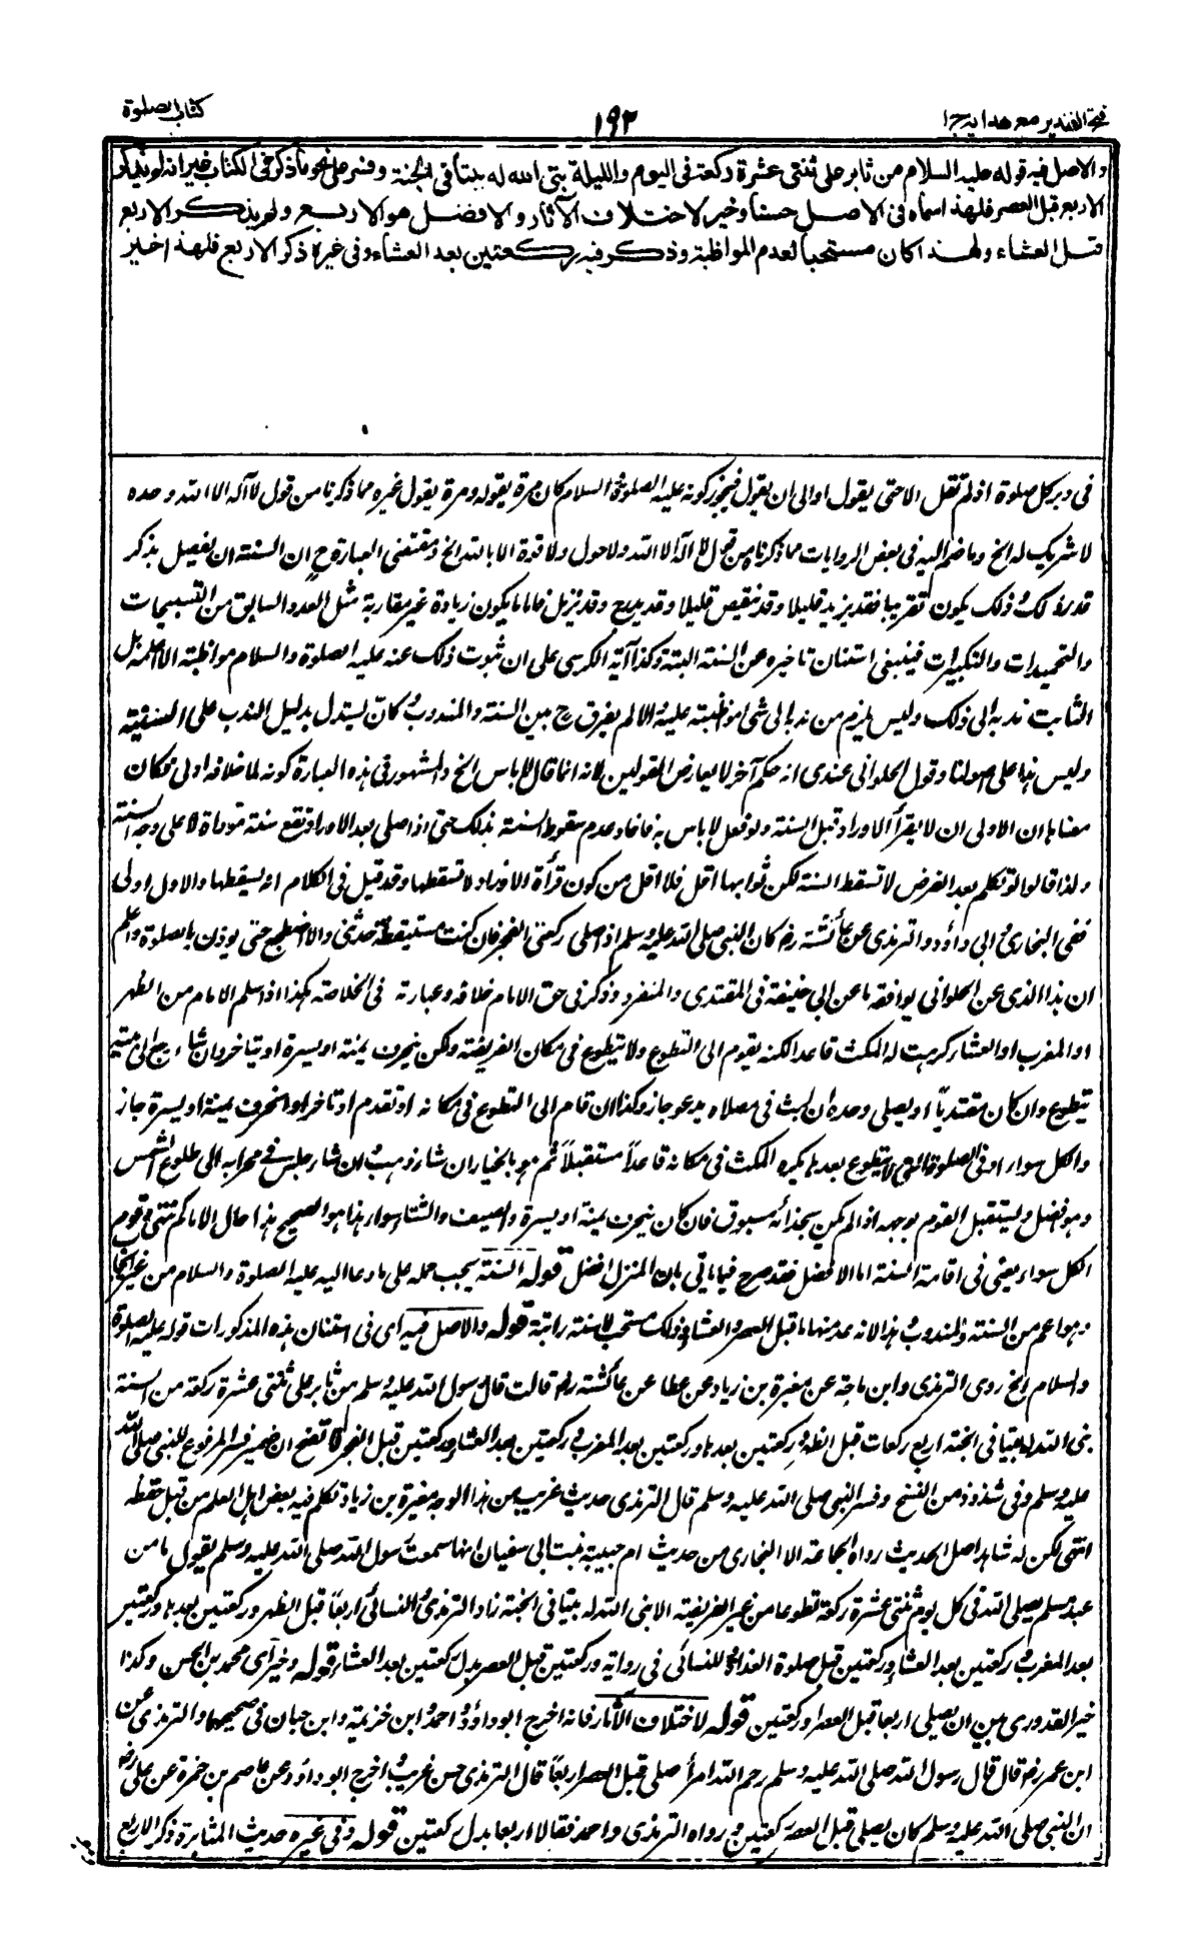 فتح القدير مع هدايه ج ١
١٩٢
كتاب الصلوة
والاصل فيه قوله عليه السلام من ثابر على ثنتى عشرة ركعة فى اليوم والليلة بنى الله له بيتا فى الجنة وفسر على نحو ما ذكر فى الكتاب غير انه لم يذكر
الاربع قبل العصر فلهذا سماه فى الاصل حسنا وخير لاختلاف الآثار والافضل هو الاربع ولم يذكر الاربع
قبل العشاء ولهذا كان مستحبا لعدم المواظبة وذكر فيه ركعتين بعد العشاء وفى غيره ذكر الاربع فلهذا خير
فى دبر كل صلوة اذ لم تقل الا حتى يقول او الى ان يقول فيجوز كونه عليه الصلوة والسلام كان مرة يقوله ومرة يقول غيره مما ذكرنا من قول لا اله الا الله وحده
لا شريك له الخ وما ضم اليه فى بعض الروايات مما ذكرناه من قول لا اله الا الله ولا حول ولا قوة الا بالله الخ ومقتضى العبارة ح ان السنة ان يفصل بذكر
قدر ذلك وذلك يكون تقريبا فقد يزيد قليلا وقد ينقص قليلا وقد يدرج وقد يرتل فاما ما يكون زيادة غير مقاربة مثل العدد السابق من التسبيحات
والتحميدات والتكبيرات فينبغى استنان تاخيره عن السنة البتة وكذا آية الكرسى على ان ثبوت ذلك عنه عليه الصلوة والسلام مواظبة لا اعلمه بل
الثابت ندبه الى ذلك وليس يلزم من ندبه الى شئ مواظبته عليه والا لم يفرق ح بين السنة والمندوب وكان يستدل بدليل الندب على السنية
وليس هذا على اصولنا وقول الحلوانى عندى انه حكم آخر لا يعارض القولين لانه انما قال لا باس الخ والمشهور فى هذه العبارة كونه لما خلافه اولى فكان
معناها ان الاولى ان لا يقرأ الاوراد قبل السنة ولو فعل لا باس به فافاد عدم سقوط السنة بذلك حتى اذا صلى بعد الاوراد تقع سنة مؤداة لا على وجه السنة
ولذا قالوا لو تكلم بعد الفرض لا تسقط السنة لكن ثوابها اقل فلا اقل من كون قرأة الاوراد لا تسقطها وقد قيل فى الكلام انه يسقطها والاول اولى
ففى البخارى وابى داؤد والترمذى عن عائشة رض كان النبى صلى الله عليه وسلم اذا صلى ركعتى الفجر فان كنت مستيقظة حدثنى والا اضطجع حتى يوذن بالصلوة واعلم
ان هذا الذى عن الحلوانى يوافقه ما عن ابى حنيفة فى المقتدى والمنفرد وذكر فى حق الامام خلافه وعبارته فى الخلاصة هكذا اذا سلم الامام من الظهر
او المغرب او العشاء كرهت له المكث قاعدا لكنه يقوم الى التطوع ولا يتطوع فى مكان الفريضة ولكن ينحرف يمنة او يسرة او يتاخر وان شاء رجع الى بيته
يتطوع وان كان مقتديا او يصلى وحده ان لبث فى مصلاه يدعو جاز وكذا ان قام الى التطوع فى مكانه او تقدم او تاخر او انحرف يمنة او يسرة جاز
والكل سواء وفى الصلوة التى لا يتطوع بعدها يكره المكث فى مكانه قاعدا مستقبلا ثم هو بالخيار ان شاء ذهب وان شاء جلس فى محرابه الى طلوع الشمس
وهو افضل ويستقبل القوم بوجهه اذا لم يكن بحذائه مسبوق فان كان ينحرف يمنة او يسرة والصيف والشتاء سواء هذا هو الصحيح هذا حال الامام
الكل سواء يعنى فى اقامة السنة اما الافضل فقد صرح فيما ياتى بان المنزل افضل قوله السنة يجب حمله على ما دعا اليه عليه الصلوة والسلام من غير ايجاب
وهو اعم من السنة والمندوب هذا لانه عد منها ما قبل العصر والعشاء وذلك مستحب لا سنة راتبة قوله والاصل فيه اى فى استنان هذه المذكورات قوله عليه الصلوة
والسلام الخ روى الترمذى وابن ماجة عن مغيرة بن زياد عن عطا عن عائشة رض قالت قال رسول الله صلى الله عليه وسلم من ثابر على ثنتى عشرة ركعة من السنة
بنى الله له بيتا فى الجنة اربع ركعات قبل الظهر وركعتين بعدها وركعتين بعد المغرب وركعتين بعد العشاء وركعتين قبل الفجر ان ضمير فسر المرفوع للنبى صلى الله
عليه وسلم وفى شذوذ من النسخ وفسر النبى صلى الله عليه وسلم قال الترمذى حديث غريب من هذا الوجه مغيرة بن زياد تكلم فيه بعض اهل العلم من قبل حفظه
انتهى لكن له شاهد اصل الحديث رواه الجماعة الا البخارى من حديث ام حبيبة بنت ابى سفيان انها سمعت رسول الله صلى الله عليه وسلم يقول ما من
عبد مسلم يصلى لله فى كل يوم ثنتى عشرة ركعة تطوعا من غير الفريضة الا بنى الله له بيتا فى الجنة زاد الترمذى والنسائى اربعا قبل الظهر وركعتين بعدها وركعتين
بعد المغرب وركعتين بعد العشاء وركعتين قبل صلوة الغداة وللنسائى فى رواية وركعتين قبل العصر بدل ركعتين بعد العشاء قوله وخير اى محمد بن الحسن وكذا
خير القدورى بين ان يصلى اربعا قبل العصر او ركعتين قوله لاختلاف الآثار فانه اخرج ابو داؤد واحمد وابن خزيمة وابن حبان فى صحيحيهما والترمذى عن
ابن عمر رض قال قال رسول الله صلى الله عليه وسلم رحم الله امرأ صلى قبل العصر اربعا قال الترمذى حسن غريب واخرج ابو داؤد عن عاصم بن ضمرة عن على رض
ان النبى صلى الله عليه وسلم كان يصلى قبل العصر ركعتين ورواه الترمذى واحمد فقالا اربعا بدل ركعتين قوله وفى غيره حديث المثابرة ذكر الاربع